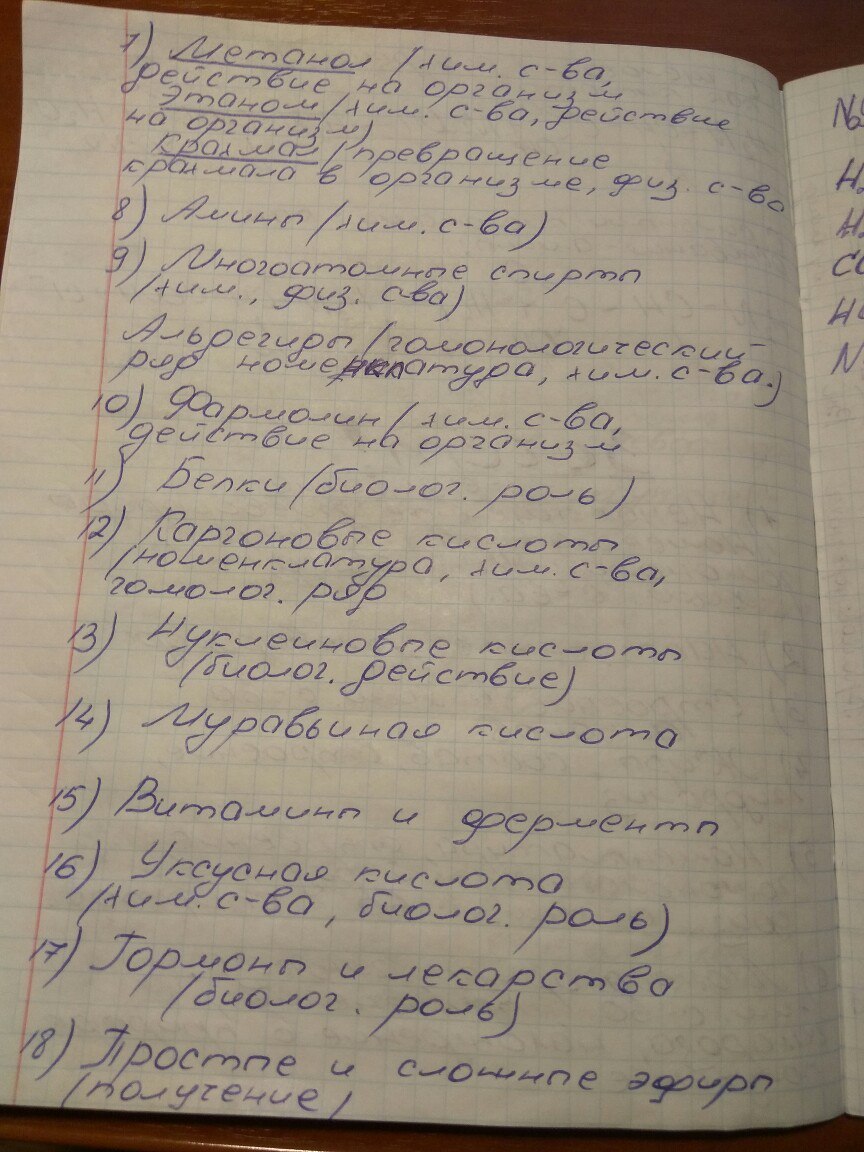 7) Метанол (хим. с-ва,
действие на организм
этанол (хим. с-ва, действие
на организм)
крахмал (превращение
крахмала в организме, физ. с-ва
8) Амины (хим. с-ва)
9) Многоатомные спирты
(хим., физ. с-ва)
Альдегиды (гомонологический
ряд номенклатура, хим. с-ва.)
10) Фармолин (хим. с-ва,
действие на организм
11) Белки (биолог. роль)
12) Каргоновые кислоты
(номенклатура, хим. с-ва,
гомолог. ряд
13) Нуклеиновые кислоты
(биолог. действие)
14) Муравьиная кислота
15) Витамины и ферменты
16) Уксусная кислота
(хим. с-ва, биолог. роль)
17) Гормоны и лекарства
(биолог. роль)
18) Простые и сложные эфиры
(получение)